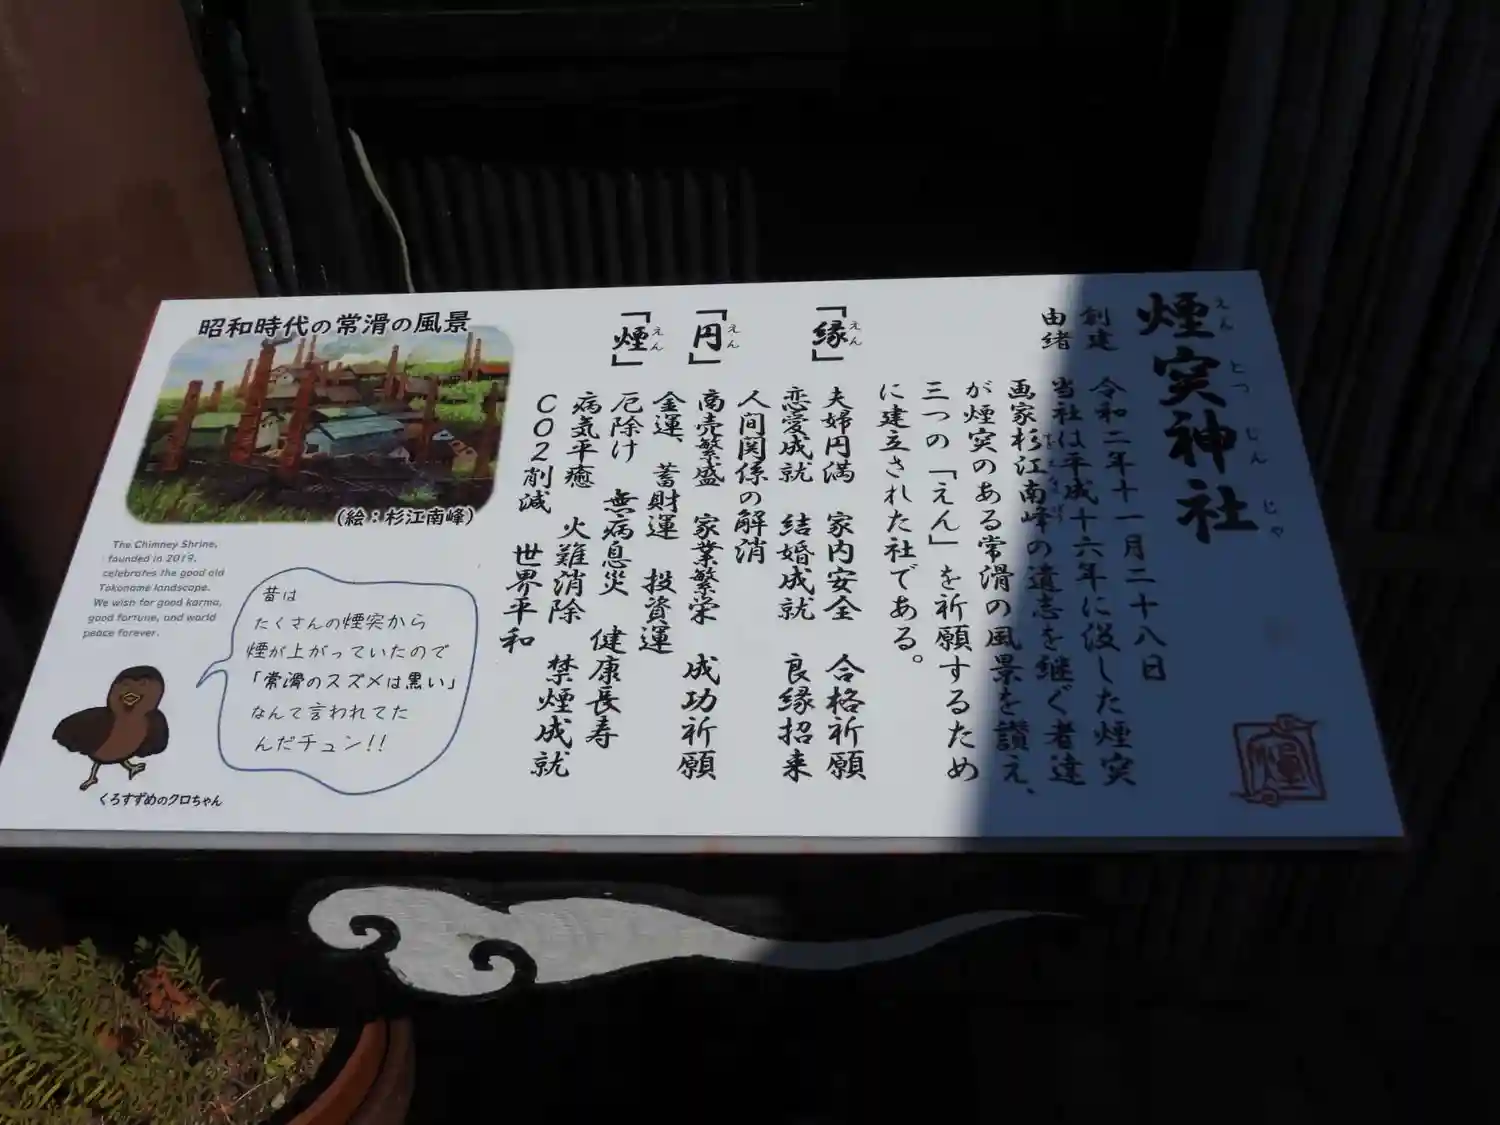 煙突神社
えんとつじんじゃ
創建 令和二年十一月二十八日
由緒 当社は平成十六年に没した煙突
画家杉江南峰の遺志を継ぐ者達
が煙突のある常滑の風景を讃え、
三つの「えん」を祈願するため
に建立された社である。
「縁」 夫婦円満 家内安全 合格祈願
えん
恋愛成就 結婚成就 良縁招来
人間関係の解消
「円」 商売繁盛 家業繁栄 成功祈願
えん
金運、蓄財運 投資運
「煙」 厄除け 無病息災 健康長寿
えん
病気平癒 火難消除 禁煙成就
CO2削減 世界平和
昭和時代の常滑の風景
(絵:杉江南峰)
The Chimney Shrine,
founded in 2019,
celebrates the good old
Tokoname landscape.
We wish for good karma,
good fortune, and world
peace forever.
昔は
たくさんの煙突から
煙が上がっていたので
「常滑のスズメは黒い」
なんて言われてた
んだチュン!!
くろすずめのクロちゃん
煙